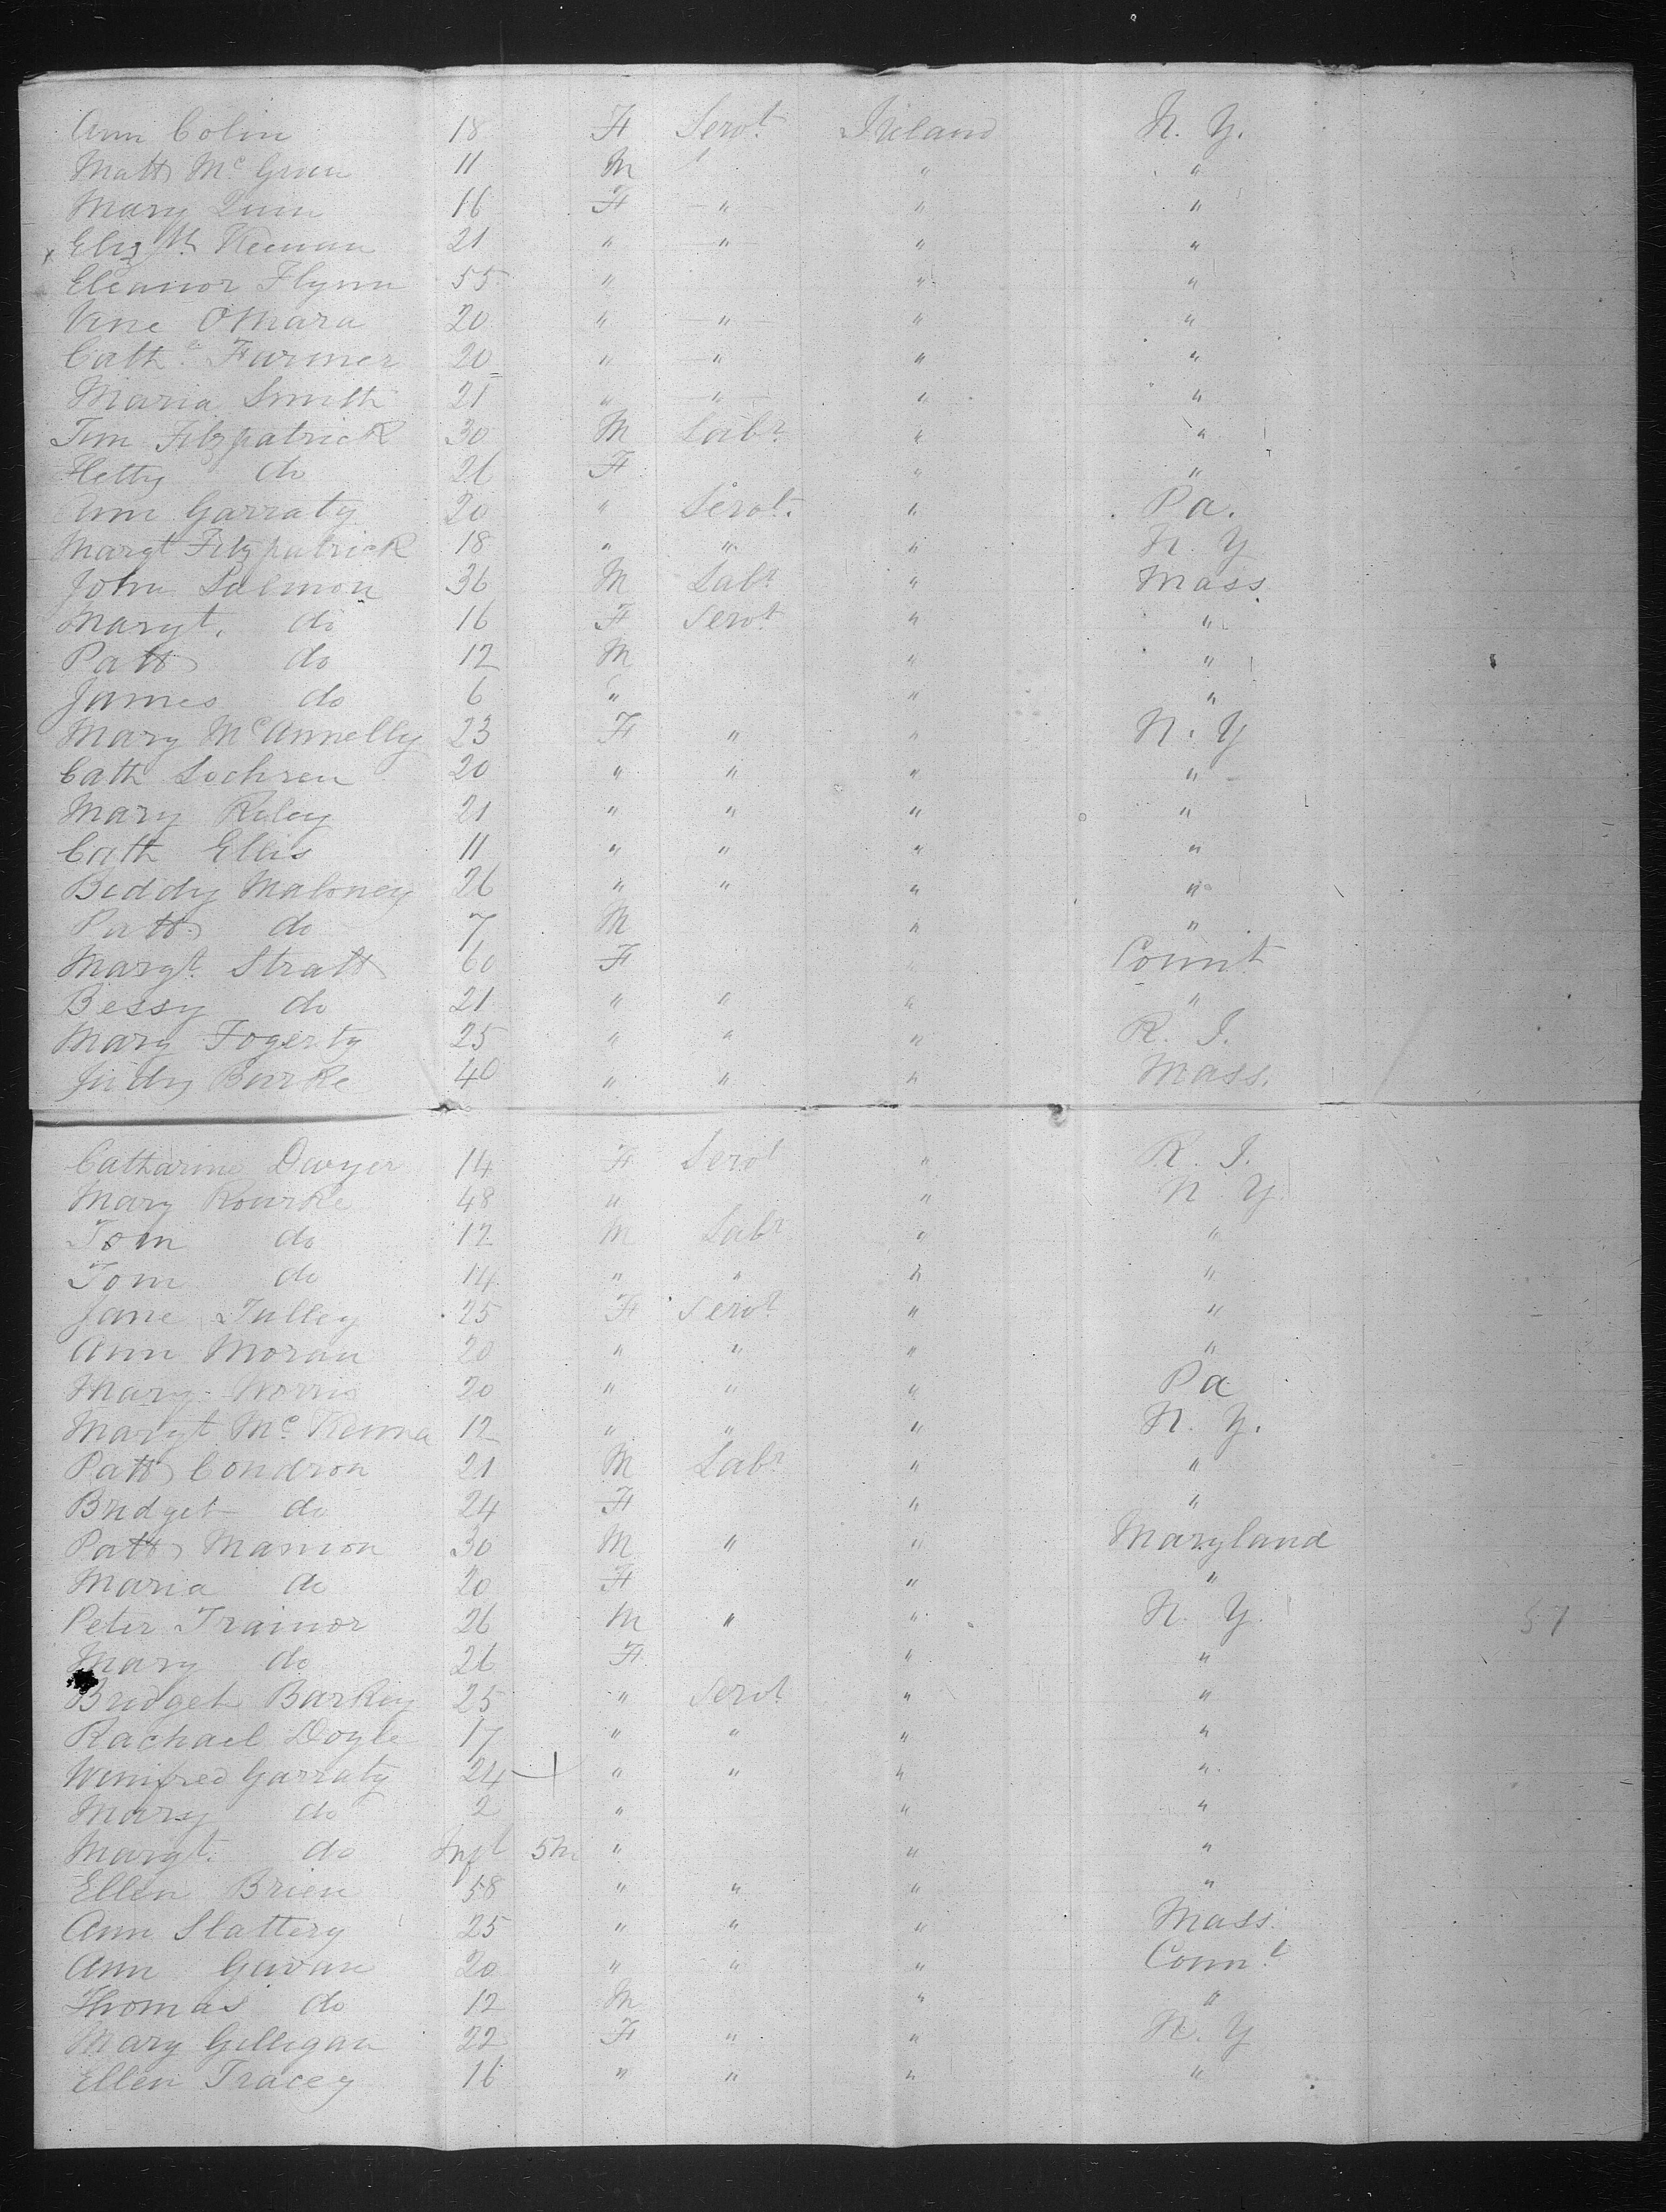 Ann Colin 18 F Servt Ireland N. Y.
Matt Mc 11 M " "
Mary Quin 16 F " " "
x Elizth Keenan 21 " " " "
Eleanor Flynn 55 " " "
O'Mara 20 " " " "
Cathe Farmer 20 " " " "
Maria Smith 21 " " " "
Tim Fitzpatrick 30 M Labr " "
Hetty do 26 F " "
Ann Garraty 20 " Servt. " Pa.
Margt Fitzpatrick 18 " " " N. Y
John Salmon 36 M Labr " Mass
Margt. do 16 F Servt " "
Patt do 12 M " "
James do 6 " " "
Mary McAnnelly 23 F " " N. Y
Cath Lochren 20 " " " "
Mary Riley 21 " " " "
Cath Ellis 11 " " " "
Biddy Maloney 26 " " " "
Patt do 7 M " "
Margt Stratt 60 F " Connt
Bessy do 21 " " " "
Mary Fogerty 25 " " " R. I.
Judy Burke 40 " " " Mass.
Catharine Dwyer 14 F Servt " R. I.
Mary Rourke 48 " " N. Y
Tom do 12 M Labr " "
Tom do 14 " " " "
Jane Tulley 25 F Servt " "
Ann Moran 20 " " " "
Mary Norris 20 " " " Pa
Margt Mc Kenna 12 " " " N. Y.
Patt Condron 21 M Labr " "
Bridget do 24 F " "
Patt Mannion 30 M " " Maryland
Maria do 20 F " "
Peter Trainor 26 M " " N. Y. 57
Mary do 26 F " "
Bridget Barkey 25 " Servt " "
Rachael Doyle 17 " " " "
Winifred Garraty 24 " " " "
Mary do 2 " " "
Margt. do Inft 5m " " "
Ellen Brien 58 " " " "
Ann Slattery 25 " " " Mass.
Ann Gavan 20 " " " Connt
Thomas do 12 M " "
Mary Gilligan 22 F " " N. Y
Ellen Tracey 16 " " " "